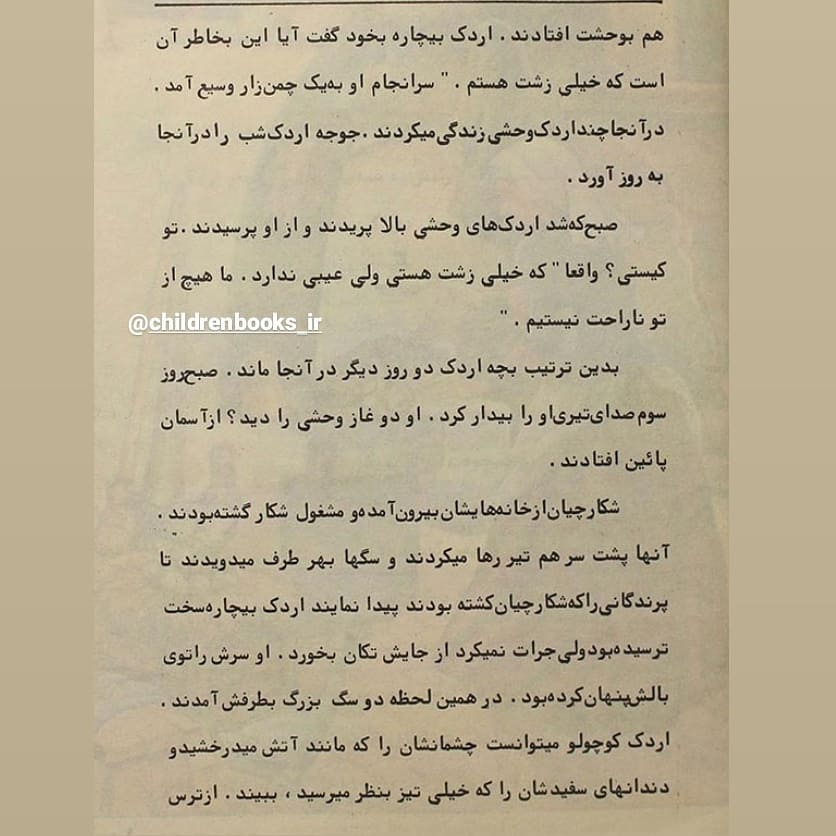 هم بوحشت افتادند . اردک بیچاره بخود گفت آیا این بخاطر آن
است که خیلی زشت هستم . " سرانجام او به‌یک چمن‌زار وسیع آمد .
در آنجا چند اردک وحشی زندگی میکردند . جوجه اردک شب را در آنجا
به روز آورد .
صبح که شد اردک‌های وحشی بالا پریدند و از او پرسیدند . تو
کیستی ؟ واقعا " که خیلی زشت هستی ولی عیبی ندارد . ما هیچ از
تو ناراحت نیستیم . "
@childrenbooks_ir
بدین ترتیب بچه اردک دو روز دیگر در آنجا ماند . صبح روز
سوم صدای تیری او را بیدار کرد . او دو غاز وحشی را دید ؟ از آسمان
پائین افتادند .
شکارچیان از خانه‌هایشان بیرون آمده و مشغول شکار گشته بودند .
آنها پشت سر هم تیر رها میکردند و سگها بهر طرف میدویدند تا
پرندگانی را که شکارچیان کشته بودند پیدا نمایند اردک بیچاره سخت
ترسیده بود ولی جرات نمیکرد از جایش تکان بخورد . او سرش را توی
بالش پنهان کرده بود . در همین لحظه دو سگ بزرگ بطرفش آمدند .
اردک کوچولو میتوانست چشمانشان را که مانند آتش میدرخشید و
دندانهای سفیدشان را که خیلی تیز بنظر میرسید ، ببیند . از ترس